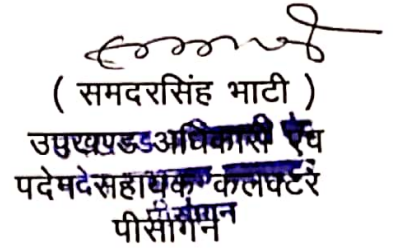 ( समदरसिंह भाटी )
उपखण्ड अधिकारी एवं
पदेन सहायक कलक्टर
पीसांगन